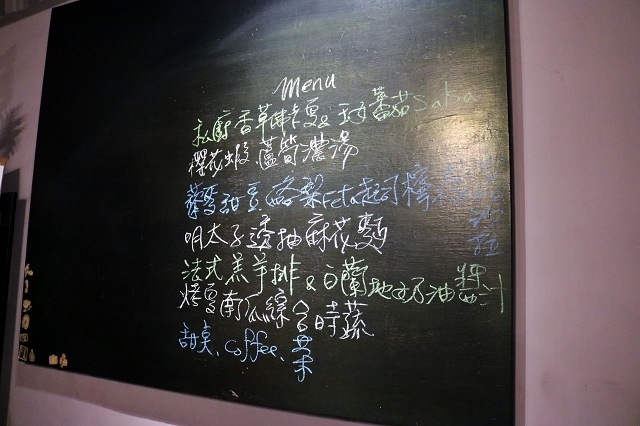 menu
私廚香草烤麵包 & 番茄 Salsa
櫻花蝦蘆筍濃湯
蘿蔓甜豆酪梨Feta起司
明太子透抽麻花麵
法式羔羊排 & 白蘭地奶油醬汁
烤南瓜綜合時蔬
甜點、coffee、茶